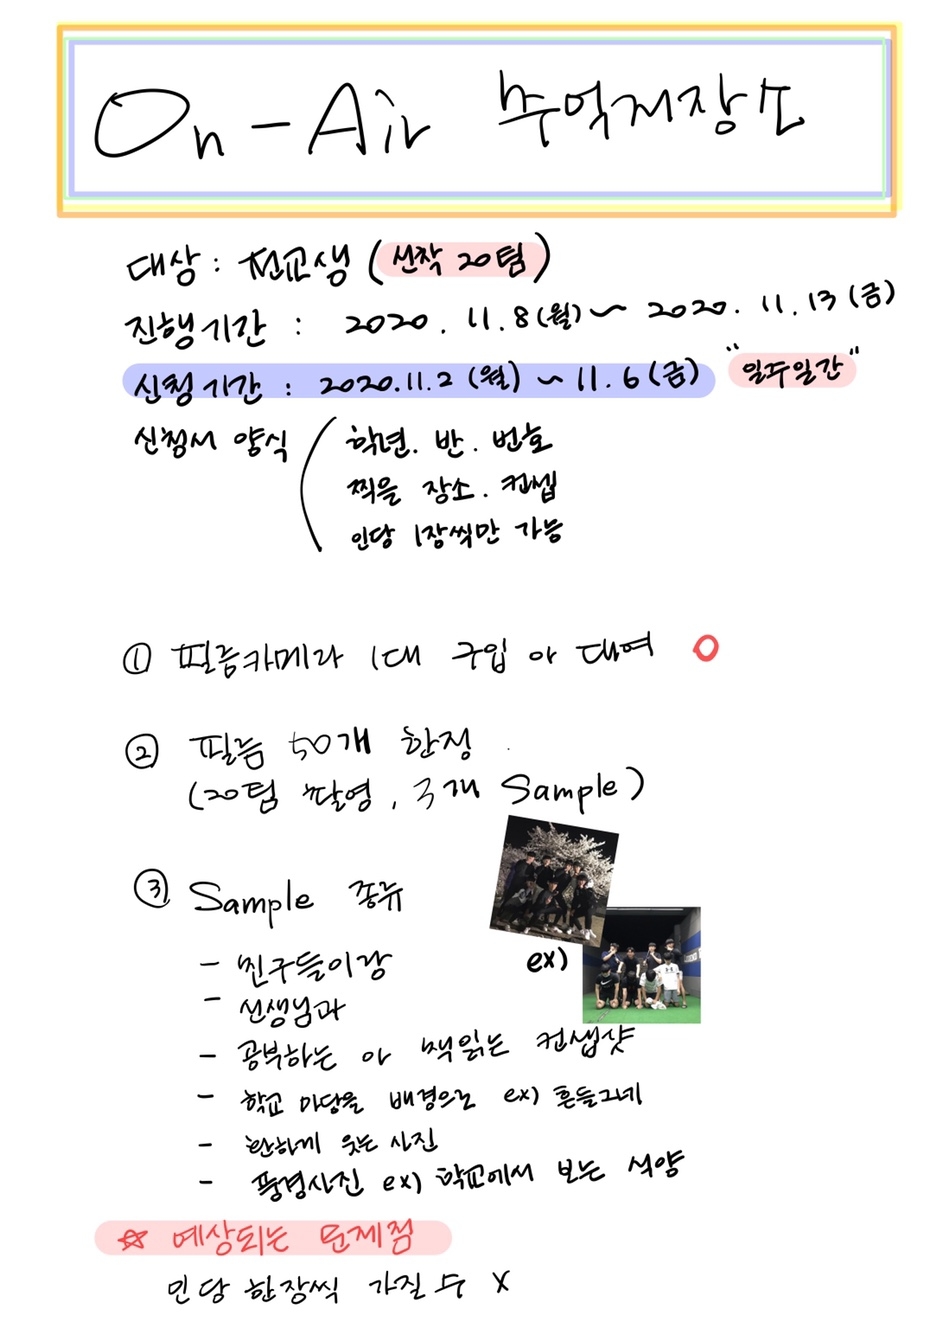 On-Air 추억저장소
대상 : 전교생 (선착 20팀)
진행기간 : 2020. 11. 8(월)~ 2020. 11. 13(금)
신청기간 : 2020.11.2 (월) ~ 11.6(금) "일주일간"
신청서 양식 ( 학년. 반. 번호
찍을 장소. 컨셉
인당 1장씩만 가능
① 필름카메라 1대 구입 or 대여 O
② 필름 50개 한정
(20팀 촬영, 3개 Sample)
③ Sample 종류
- 친구들이랑
ex)
- 선생님과
- 공부하는 or 책읽는 컨셉샷
- 학교 마당을 배경으로 ex) 흔들그네
- 환하게 웃는 사진
- 풍경사진 ex) 학교에서 보는 석양
☆ 예상되는 문제점
인당 한장씩 가질 수 X